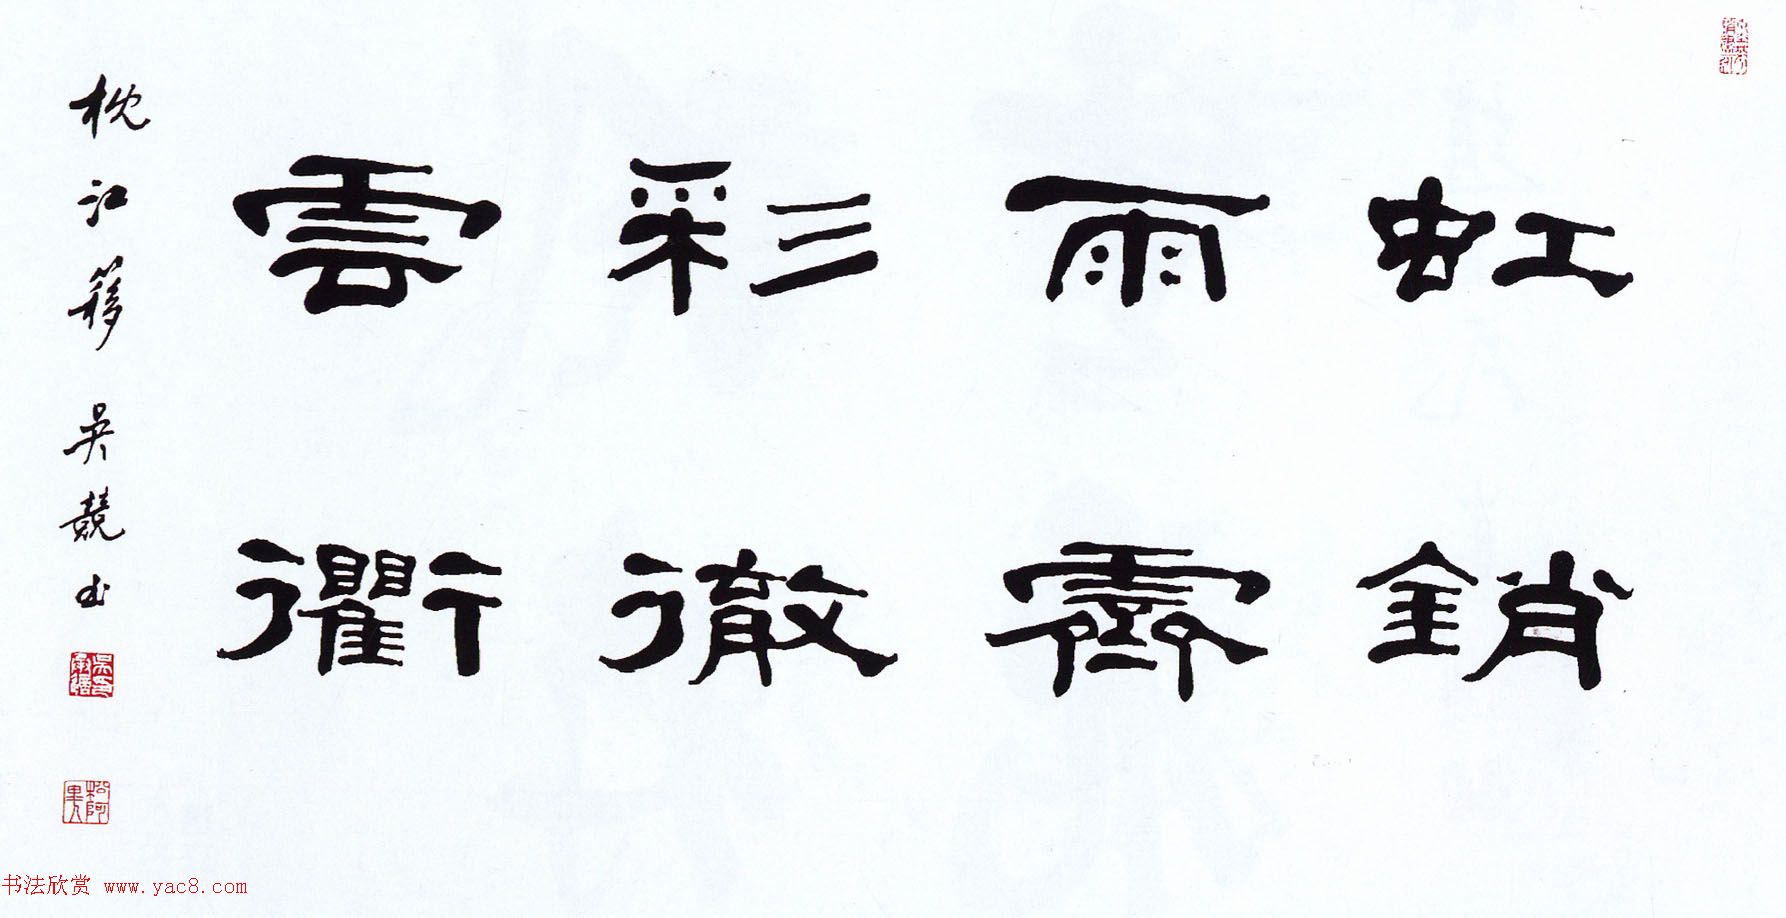 虹銷
雨霽
彩徹
雲衢
枕江簃吳兢书
书法欣赏 www.yac8.com